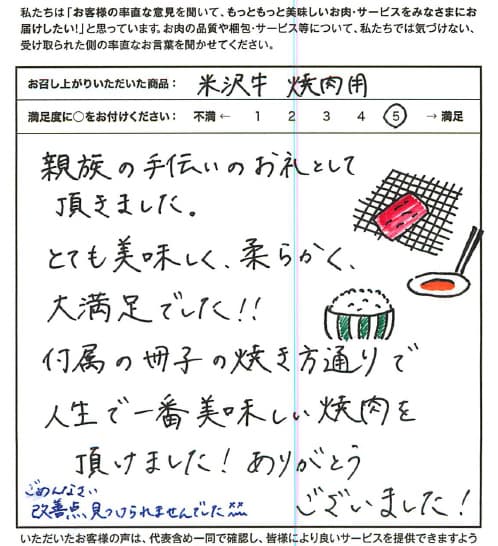 私たちは「お客様の率直な意見を聞いて、もっともっと美味しいお肉・サービスをみなさまにお
届けしたい!」と思っています。お肉の品質や梱包・サービス等について、私たちでは気づけない、
受け取られた側の率直なお言葉を聞かせてください。
お召し上がりいただいた商品: 米沢牛 焼肉用
満足度に○をお付けください: 不満 ← 1 2 3 4 5 → 満足
親族の手伝いのお礼として
頂きました。
とても美味しく、柔らかく、
大満足でした!!
付属の冊子の焼き方通りで
人生で一番美味しい焼肉を
頂けました!ありがとう
ございました!
ごめんなさい
改善点、見つけられませんでした
いただいたお客様の声は、代表含め一同で確認し、皆様により良いサービスを提供できますよう